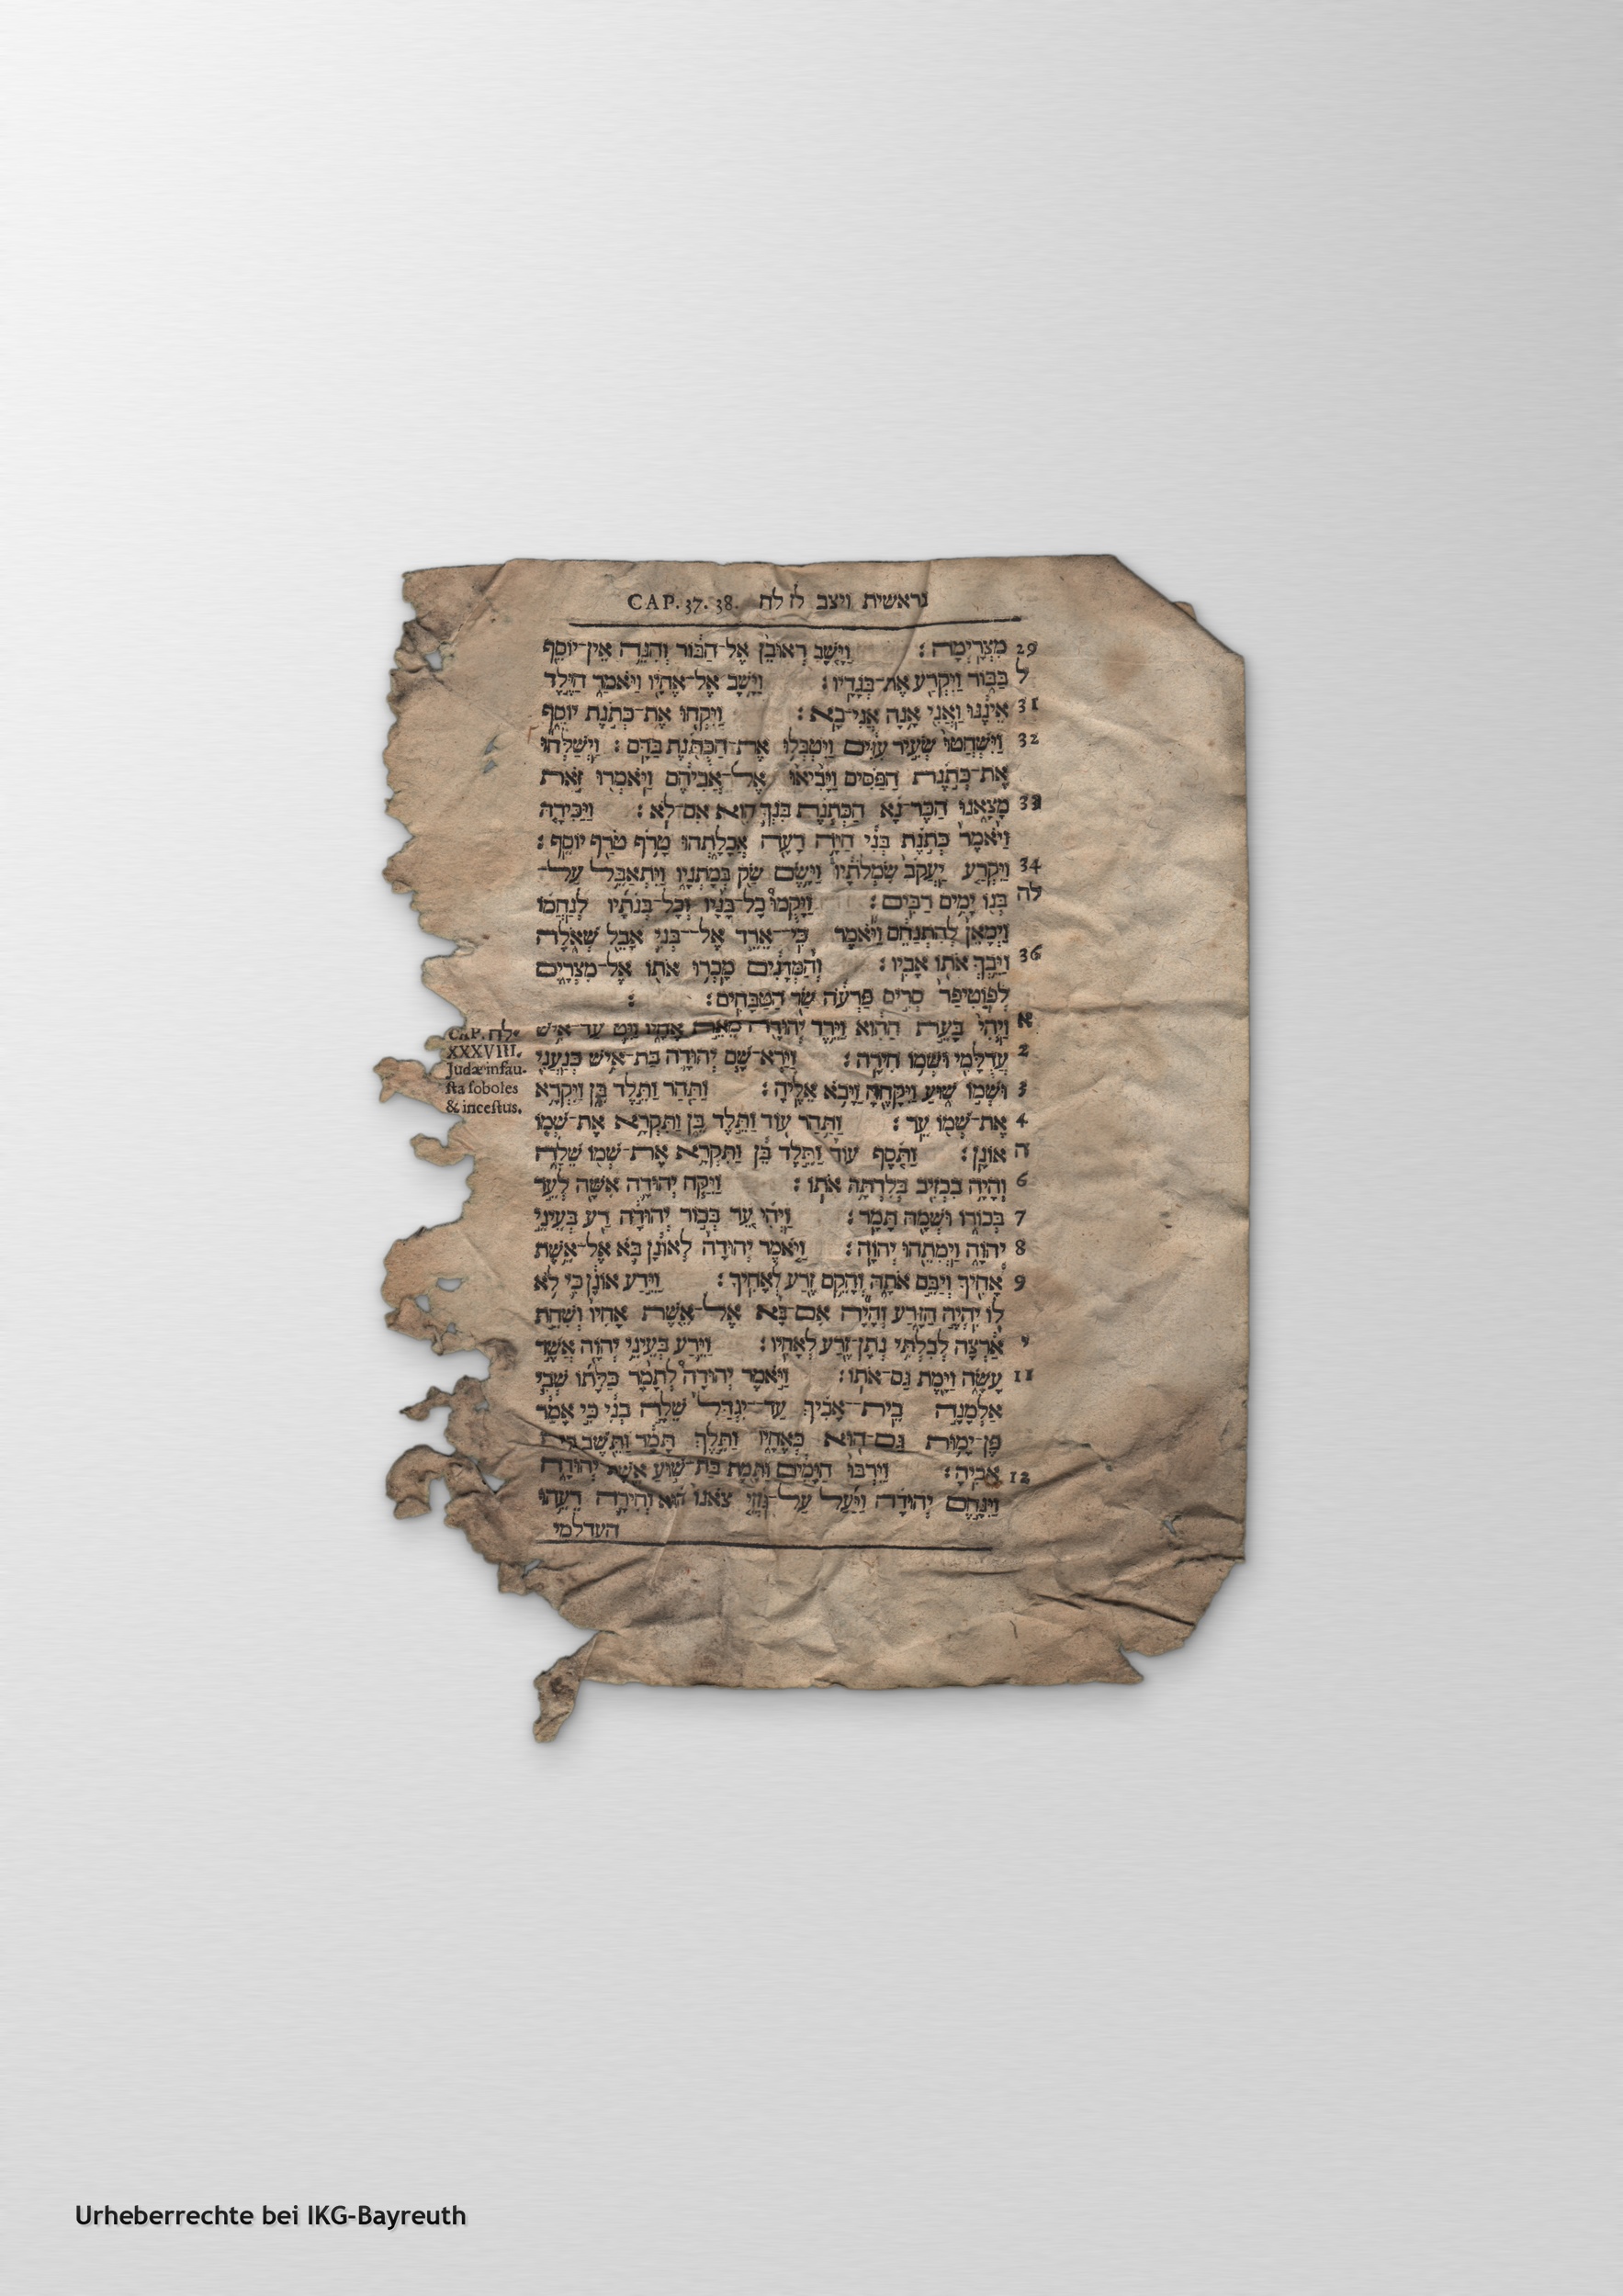 בראשית וישב לז לח CAP. 37. 38.
29 מִצְרָיְמָה׃ וַיָּשָׁב רְאוּבֵן אֶל־הַבּוֹר וְהִנֵּה אֵין־יוֹסֵף
ל בַּבּוֹר וַיִּקְרַע אֶת־בְּגָדָיו׃ וַיָּשָׁב אֶל־אֶחָיו וַיֹּאמַר הַיֶּלֶד
31 אֵינֶנּוּ וַאֲנִי אָנָה אֲנִי־בָא׃ וַיִּקְחוּ אֶת־כְּתֹנֶת יוֹסֵף
32 וַיִּשְׁחֲטוּ שְׂעִיר עִזִּים וַיִּטְבְּלוּ אֶת־הַכֻּתֹּנֶת בַּדָּם׃ וַיְשַׁלְּחוּ
אֶת־כְּתֹנֶת הַפַּסִּים וַיָּבִיאוּ אֶל־אֲבִיהֶם וַיֹּאמְרוּ זֹאת
33 מָצָאנוּ הַכֶּר־נָא הַכְּתֹנֶת בִּנְךָ הִוא אִם־לֹא׃ וַיַּכִּירָהּ
וַיֹּאמֶר כְּתֹנֶת בְּנִי חַיָּה רָעָה אֲכָלָתְהוּ טָרֹף טֹרַף יוֹסֵף׃
34 וַיִּקְרַע יַעֲקֹב שִׂמְלֹתָיו וַיָּשֶׂם שַׂק בְּמָתְנָיו וַיִּתְאַבֵּל עַל־
לה בְּנוֹ יָמִים רַבִּים׃ וַיָּקֻמוּ כָל־בָּנָיו וְכָל־בְּנֹתָיו לְנַחֲמוֹ
וַיְמָאֵן לְהִתְנַחֵם וַיֹּאמֶר כִּי־אֵרֵד אֶל־בְּנִי אָבֵל שְׁאֹלָה
36 וַיֵּבְךְּ אֹתוֹ אָבִיו׃ וְהַמְּדָנִים מָכְרוּ אֹתוֹ אֶל־מִצְרָיִם
לְפוֹטִיפַר סְרִיס פַּרְעֹה שַׂר הַטַּבָּחִים׃ ׃
א וַיְהִי בָּעֵת הַהִוא וַיֵּרֶד יְהוּדָה מֵאֵת אֶחָיו וַיֵּט עַד־אִישׁ
2 עֲדֻלָּמִי וּשְׁמוֹ חִירָה׃ וַיַּרְא־שָׁם יְהוּדָה בַּת־אִישׁ כְּנַעֲנִי
3 וּשְׁמוֹ שׁוּעַ וַיִּקָּחֶהָ וַיָּבֹא אֵלֶיהָ׃ וַתַּהַר וַתֵּלֶד בֵּן וַיִּקְרָא
4 אֶת־שְׁמוֹ עֵר׃ וַתַּהַר עוֹד וַתֵּלֶד בֵּן וַתִּקְרָא אֶת־שְׁמוֹ
ה אוֹנָן׃ וַתֹּסֶף עוֹד וַתֵּלֶד בֵּן וַתִּקְרָא אֶת־שְׁמוֹ שֵׁלָה
6 וְהָיָה בִכְזִיב בְּלִדְתָּהּ אֹתוֹ׃ וַיִּקַּח יְהוּדָה אִשָּׁה לְעֵר
7 בְּכוֹרוֹ וּשְׁמָהּ תָּמָר׃ וַיְהִי עֵר בְּכוֹר יְהוּדָה רַע בְּעֵינֵי
8 יְהוָה וַיְמִתֵהוּ יְהוָה׃ וַיֹּאמֶר יְהוּדָה לְאוֹנָן בֹּא אֶל־אֵשֶׁת
9 אָחִיךָ וְיַבֵּם אֹתָהּ וְהָקֵם זֶרַע לְאָחִיךָ׃ וַיֵּדַע אוֹנָן כִּי לֹא
לּוֹ יִהְיֶה הַזָּרַע וְהָיָה אִם־בָּא אֶל־אֵשֶׁת אָחִיו וְשִׁחֵת
י אַרְצָה לְבִלְתִּי נְתָן־זֶרַע לְאָחִיו׃ וַיֵּרַע בְּעֵינֵי יְהוָה אֲשֶׁר
11 עָשָׂה וַיָּמֶת גַּם־אֹתוֹ׃ וַיֹּאמֶר יְהוּדָה לְתָמָר כַּלָּתוֹ שְׁבִי
אַלְמָנָה בֵית־אָבִיךְ עַד־יִגְדַּל שֵׁלָה בְנִי כִּי אָמַר
פֶּן־יָמוּת גַּם־הוּא כְּאֶחָיו וַתֵּלֶךְ תָּמָר וַתֵּשֶׁב בֵּית
12 אָבִיהָ׃ וַיִּרְבּוּ הַיָּמִים וַתָּמָת בַּת־שׁוּעַ אֵשֶׁת יְהוּדָה
וַיִּנָּחֶם יְהוּדָה וַיַּעַל עַל־גֹּזֲזֵי צֹאנוֹ הוּא וְחִירָה רֵעֵהוּ
העדלמי
CAP. לח.
XXXVIII.
Judæ infau-
sta soboles
& incestus.
Urheberrechte bei IKG-Bayreuth